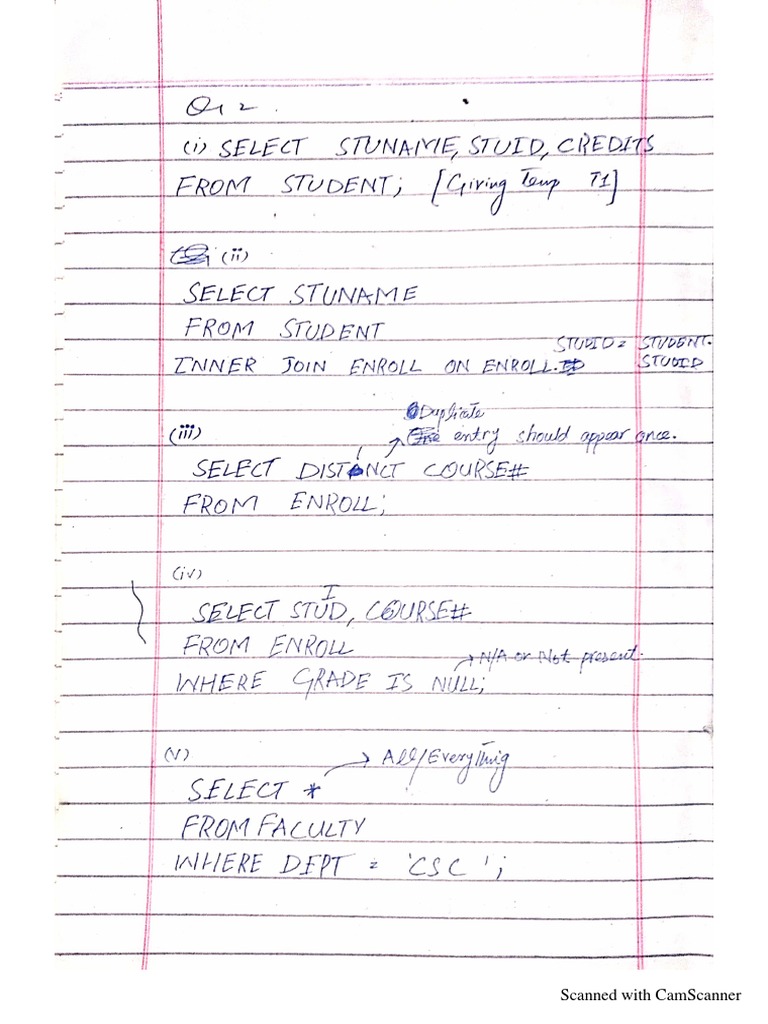 Q 2.
(i) SELECT STUNAME, STUID, CREDITS
FROM STUDENT; [Giving Temp T1]
(ii)
SELECT STUNAME
FROM STUDENT
INNER JOIN ENROLL ON ENROLL.STUDID = STUDENT.STUDID
(iii)
Duplicate
entry should appear once.
SELECT DISTINCT COURSE#
FROM ENROLL;
(iv)
SELECT STUID, COURSE#
FROM ENROLL
N/A or Not present.
WHERE GRADE IS NULL;
(v)
All/Everything
SELECT *
FROM FACULTY
WHERE DEPT = 'CSC';
Scanned with CamScanner